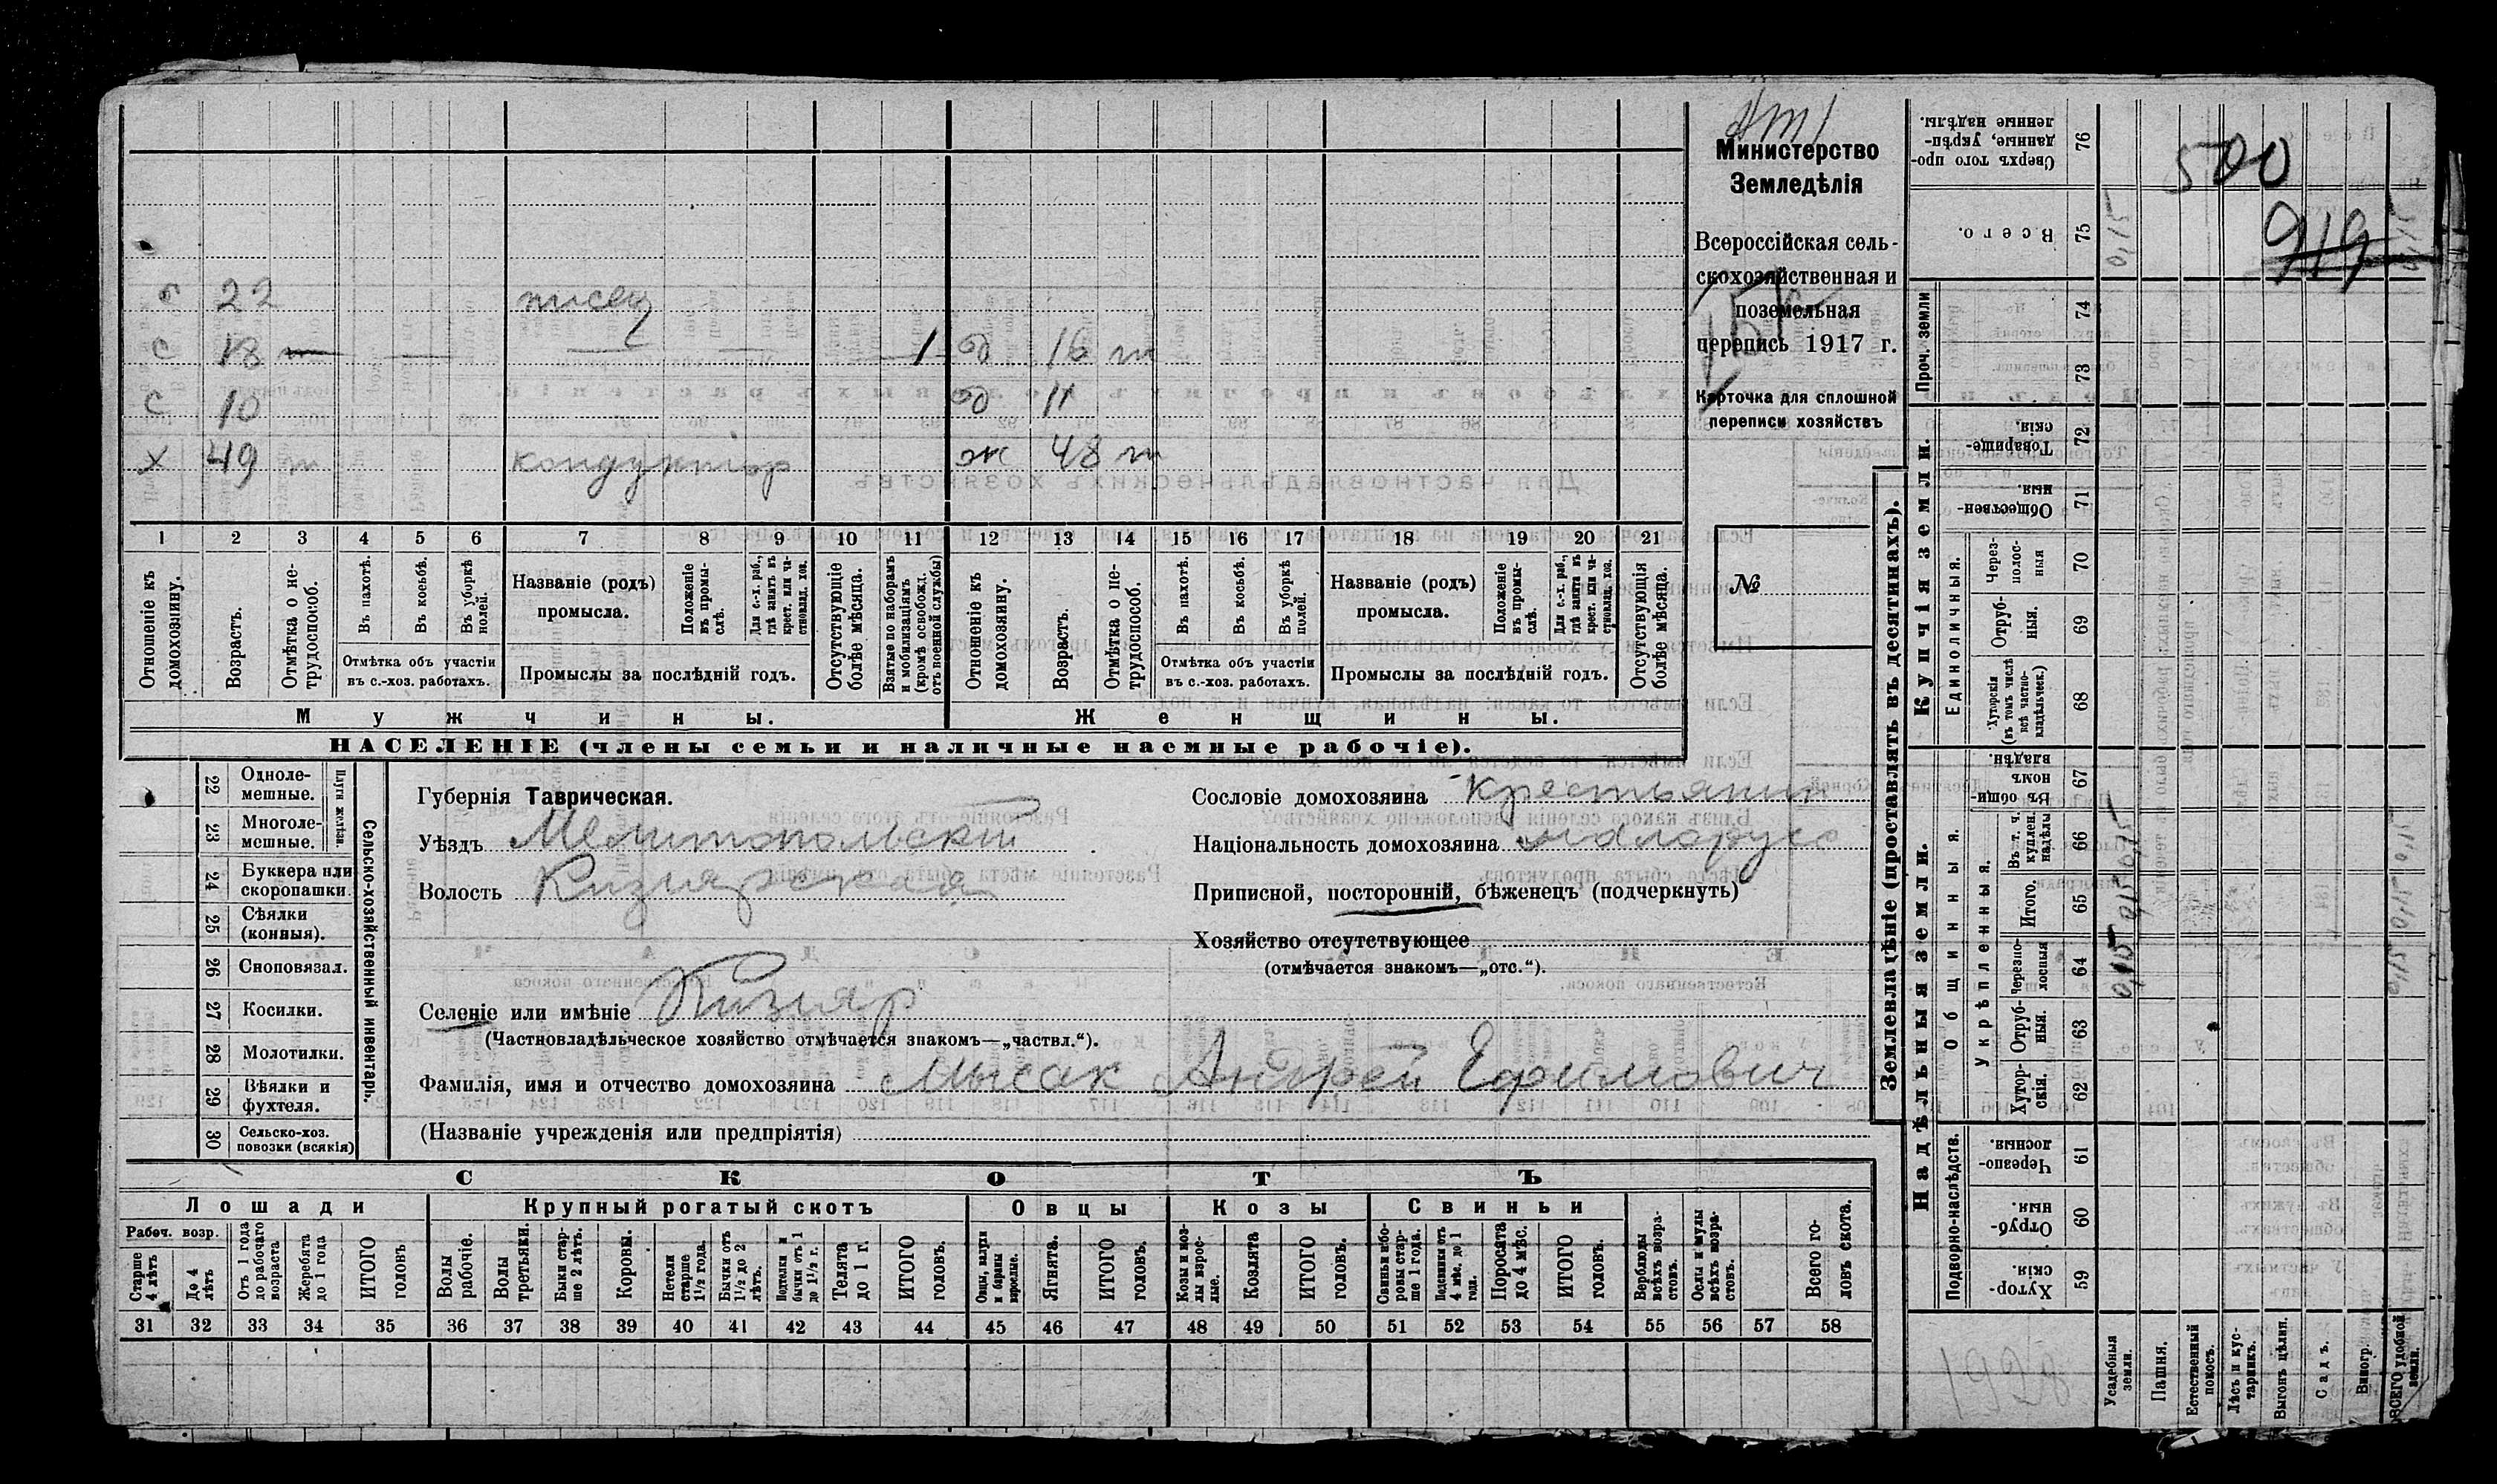 Министерство
Земледѣлія
Всероссійская сель-
скохозяйственная и
поземельная
перепись 1917 г.
Карточка для сплошной
переписи хозяйствъ
№
500
919
б 22 писец
с 18 1 д 16 т
с 10 д 11
х 49 т кондуктор ж 48 т
1 2 3 4 5 6 7 8 9 10 11 12 13 14 15 16 17 18 19 20 21
Отношеніе къ домохозяину.
Возрастъ.
Отмѣтка о не-трудоспособ.
Въ пахотѣ.
Въ косьбѣ.
Въ уборкѣ полей.
Отмѣтка объ участіи
въ с.-хоз. работахъ.
Названіе (родъ)
промысла.
Положеніе въ промы-слѣ.
Для с.-х. раб., гдѣ занятъ въ крест. или ча-стновлад. хоз.
Промыслы за послѣдній годъ.
Отсутствующіе болѣе мѣсяца.
Взятые по наборамъ и мобилизаціямъ (кромѣ освобожд. отъ военной службы)
Отношеніе къ домохозяину.
Возрастъ.
Отмѣтка о не-трудоспособ.
Въ пахотѣ.
Въ косьбѣ.
Въ уборкѣ полей.
Отмѣтка объ участіи
въ с.-хоз. работахъ.
Названіе (родъ)
промысла.
Положеніе въ промы-слѣ.
Для с.-х. раб., гдѣ занята въ крест. или ча-стновлад. хоз.
Промыслы за послѣдній годъ.
Отсутствующія болѣе мѣсяца.
Мужчины.
Женщины.
НАСЕЛЕНІЕ (члены семьи и наличные наемные рабочіе).
22 Одноле-мешные.
23 Многоле-мешные.
Плуги желѣзн.
24 Буккера или скоропашки.
25 Сѣялки (конныя).
26 Сноповязал.
27 Косилки.
28 Молотилки.
29 Вѣялки и фухтеля.
30 Сельско-хоз. повозки (всякія)
Сельско-хозяйственный инвентарь.
Губернія Таврическая.
Уѣздъ Мелитопольскій
Волость Кизиярская
Селеніе или имѣніе Кизияр
(Частновладѣльческое хозяйство отмѣчается знакомъ—„частвл.“).
Фамилія, имя и отчество домохозяина Мысак Андрей Ефимович
(Названіе учрежденія или предпріятія)
Сословіе домохозяина крестьянин
Національность домохозяина малорусс
Приписной, посторонній, бѣженецъ (подчеркнуть)
Хозяйство отсутствующее
(отмѣчается знакомъ—„отс.“).
СКОТЪ
Лошади
Крупный рогатый скотъ
Овцы
Козы
Свиньи
Рабоч. возр.
Старше 4 лѣтъ
До 4 лѣтъ
Отъ 1 года до рабочаго возраста
Жеребята до 1 года
ИТОГО головъ
Волы рабочіе.
Волы третьяки.
Быки стар-ше 2 лѣтъ.
Коровы.
Нетели старше 1½ года.
Бычки отъ 1½ до 2 лѣтъ.
Нетелки и бычки отъ 1 до 1½ г.
Телята до 1 г.
ИТОГО головъ.
Овцы, валухи и бараны взрослые.
Ягнята.
ИТОГО головъ.
Козы и коз-лы взрос-лые.
Козлята
ИТОГО головъ.
Свиньи и бо-ровы стар-ше 1 года.
Подсвинки отъ 4 мѣс. до 1 года.
Поросята до 4 мѣс.
ИТОГО головъ.
Верблюды всѣхъ возра-стовъ.
Ослы и мулы всѣхъ возра-стовъ.
Всего го-ловъ скота.
31 32 33 34 35 36 37 38 39 40 41 42 43 44 45 46 47 48 49 50 51 52 53 54 55 56 57 58
Землевладѣніе (проставлять въ десятинахъ).
Купчія земли.
Надѣльныя земли.
Проч. земли
Единоличныя.
Общинныя.
Укрѣпленныя.
Подворно-наслѣдств.
76 Сверхъ того про-данные, укрѣп-ленные надѣлы.
75 Всего.
74
73
72 Товарище-скія.
71 Обществен-ныя.
70 Через-полос-ныя
69 Отруб-ныя.
68 Хуторскія (въ томъ числѣ всѣ частно-владѣльческ.)
67 Въ общин-номъ владѣн.
66 Въ т. ч. куплен. надѣлы
65 Итого.
64 Черезпо-лосныя
63 Отруб-ныя.
62 Хутор-скія.
61 Черезпо-лосныя.
60 Отруб-ныя.
59 Хутор-скія.
Усадебныя земли.
Пашня.
Естественный покосъ.
Лѣсъ и кус-тарникъ.
Выгонъ цѣлин.
Садъ.
Виногр.
ВСЕГО удобной земли.
1928